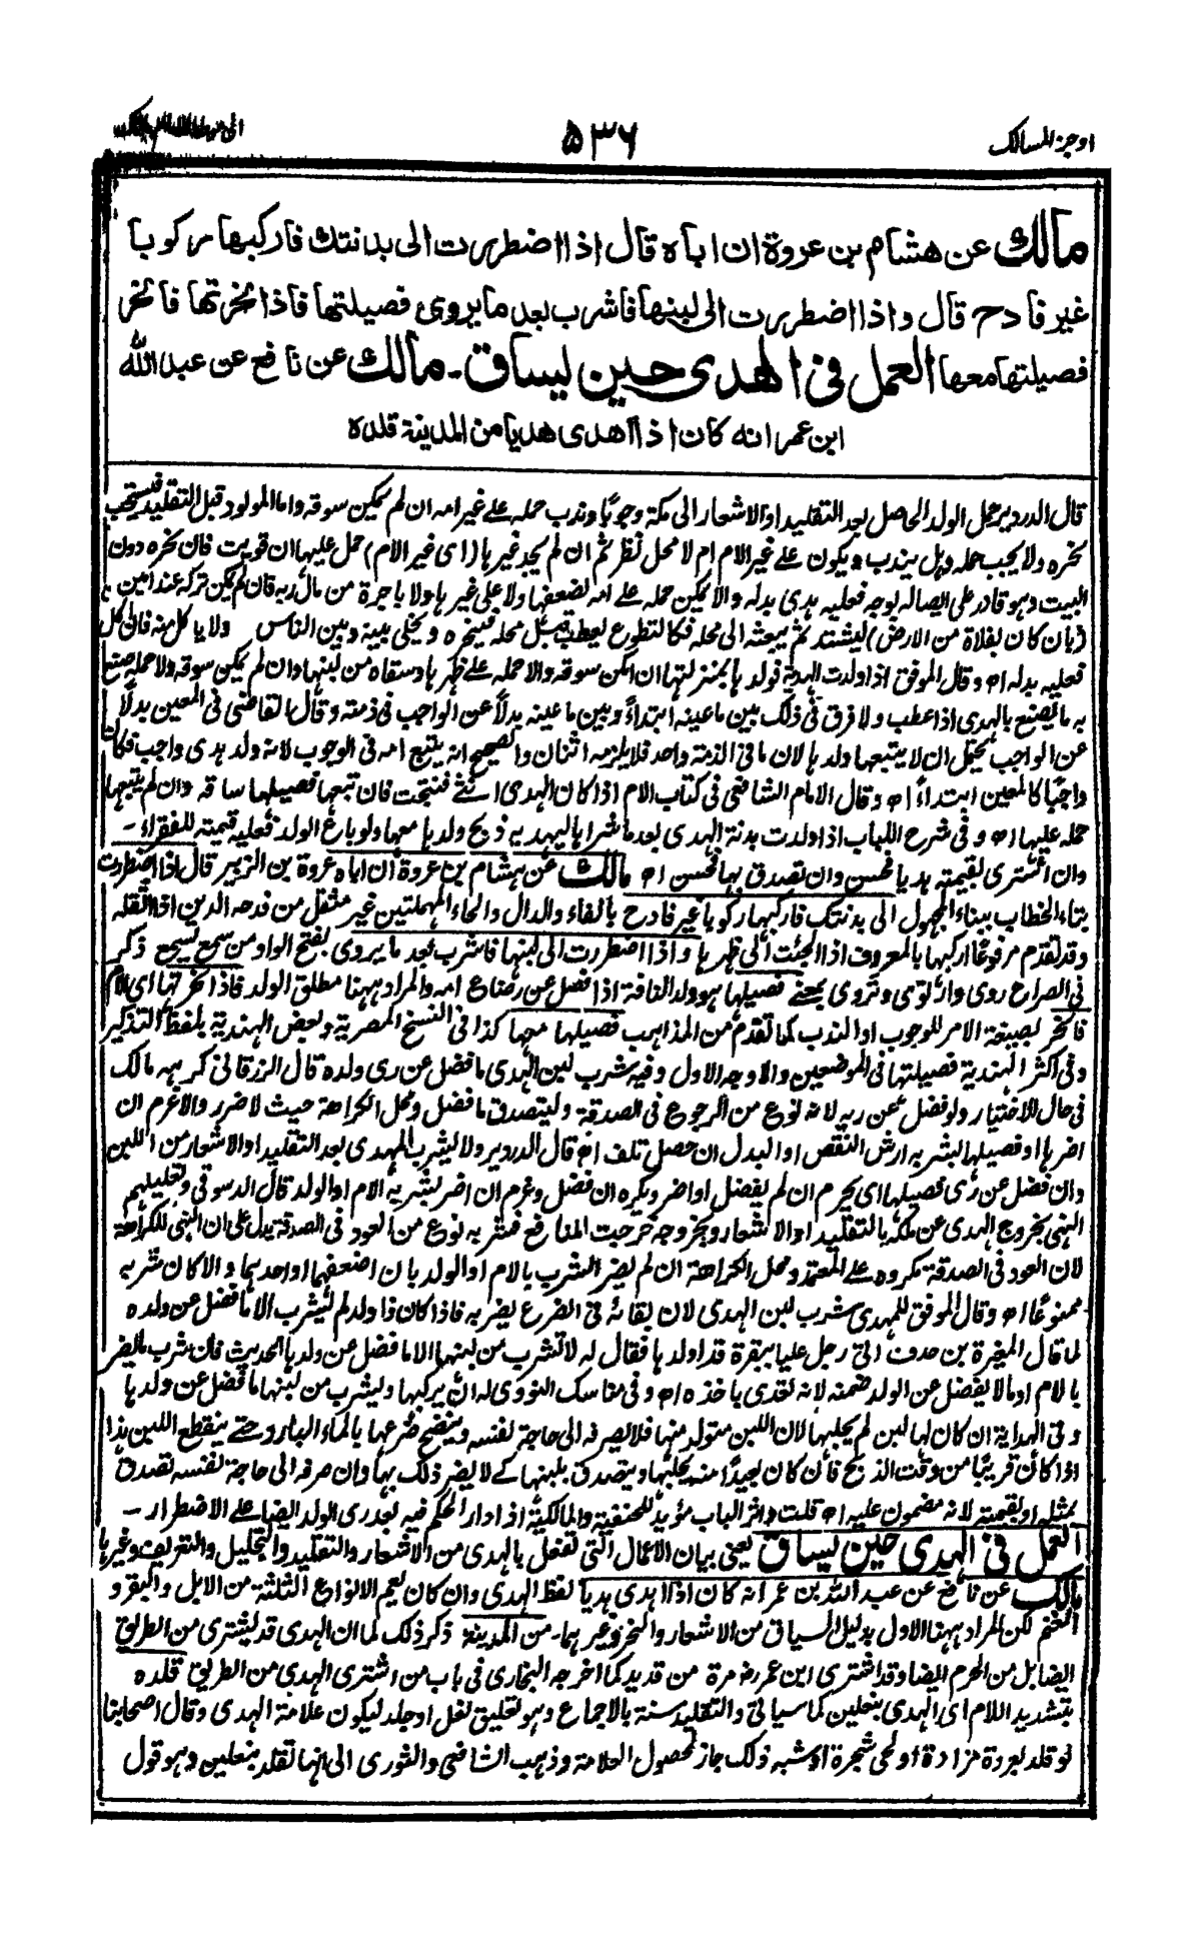 اوجز المسالك
٥٣٦
مالك عن هشام بن عروة ان اباه قال اذا اضطررت الى بدنتك فاركبها ركوبا
غير فادح قال واذا اضطررت الى لبنها فاشرب بعد ما يروى فصيلتها فاذا نحرتها فانحر
فصيلتها معها العمل فى الهدى حين يساق - مالك عن نافع عن عبد الله
ابن عمر انه كان اذا اهدى هديا من المدينة قلده
قال الدردير حمل الولد الحاصل بعد التقليد او الاشعار الى مكة وجوبًا وندب حمله على غير امه ان لم يمكن سوقه واما المولود قبل التقليد فيستحب
نحره ولا يجب حمله وهل يندب ويكون على غير الام ام لا محل نظر ثم ان لم يجد غيرها (اى غير الام) حمل عليها ان قويت فان نحره دون
البيت وهو قادر على ايصاله بوجه فعليه هدى بدله والا يمكن حمله على امه لضعفها ولا على غيرها ولا باجرة من مال ربه فان لم يمكن تركه عند امين
(بان كان بفلاة من الارض) ليشتد ثم يبعثه الى محله فكالتطوع يعطب قبل محله فينحره ويخلى بينه وبين الناس ولا ياكل منه فان اكل
فعليه بدله اه وقال الموفق اذا ولدت الهدية فولدها بمنزلتها ان امكن سوقه والا حمله على ظهرها وسقاه من لبنها وان لم يمكن سوقه ولا حمله صنع
به ما يصنع بالهدى اذا عطب ولا فرق فى ذلك بين ما عينه ابتداءً وبين ما عينه بدلاً عن الواجب فى ذمته وقال القاضى فى المعين بدلاً
عن الواجب يحتمل ان لا يتبعها ولدها لان ما فى الذمة واحد فلا يلزمه اثنان والصحيح انه يتبع امه فى الوجوب لانه ولد هدى واجب فكان
واجبًا كالمعين ابتداءً اه وقال الامام الشافعى فى كتاب الام اذا كان الهدى انثى فنتجت فان تبعها فصيلها ساقه وان لم يتبعها
حمله عليها اه وفى شرح اللباب اذا ولدت بدنة الهدى بعد ما شراها لهديه ذبح ولدها معها ولو باع الولد فعليه قيمته للفقراء -
وان اشترى بقيمته هديا فحسن وان تصدق بها فحسن اه مالك عن هشام بن عروة ان اباه عروة بن الزبير قال اذا اضطررت
بتاء الخطاب ببناء المجهول الى بدنتك فاركبها ركوبا غير فادح بالفاء والدال والحاء المهملتين غير مثقل من فدحه الدين اذا اثقله
وقد تقدم مرفوعًا اركبها بالمعروف اذا الجئت الى ظهرها واذا اضطررت الى لبنها فاشرب بعد ما يروى بفتح الواو من سمع يسمع ذكر
فى الصراح روى وارتوى وتروى بمعنى فصيلها هو ولد الناقة اذا فصل عن رضاع امه والمراد ههنا مطلق الولد فاذا نحرتها اى الام
فانحر بصيغة الامر للوجوب او الندب كما تقدم من المذاهب فصيلها معها كذا فى النسخ المصرية وبعض الهندية بلفظ التذكير
وفى اكثر الهندية فصيلتها فى الموضعين والاوجه الاول وفيه شرب لبن الهدى ما فضل عن رى ولده قال الزرقانى كرهه مالك
فى حال الاختيار ولو فضل عن ريه لانه نوع من الرجوع فى الصدقة وليتصدق ما فضل ومحل الكراهة حيث لا ضرر والا غرم ان
اضرها او فصيلها بشربه ارش النقص او البدل ان حصل تلف اه قال الدردير ولا يشرب المهدى بعد التقليد او الاشعار من اللبن
وان فضل عن رى فصيلها اى يحرم ان لم يفضل او اضر ويكره ان فضل وغرم ان اضر بشربه الام او الولد قال الدسوقى وتعليلهم
النهى بخروج الهدى عن ملكه بالتقليد او الاشعار وبخروجه خرجت المنافع فشربه نوع من العود فى الصدقة يدل على ان النهى للكراهة
لان العود فى الصدقة مكروه على المعتمد ومحل الكراهة ان لم يضر الشرب بالام او الولد بان اضعفهما او احدهما والا كان شربه
ممنوعًا اه وقال الموفق للمهدى شرب لبن الهدى لان بقائه فى الضرع يضر به فاذا كان ذا ولد لم يشرب الا ما فضل عن ولده
لما قال المغيرة بن حدف اتى رجل عليا ببقرة قد اولدها فقال له لا تشرب من لبنها الا ما فضل عن ولدها الحديث فان شرب ما يضر
بالام او ما لا يفضل عن الولد ضمنه لانه تعدى باخذه اه وفى مناسك النووى له ان يركبها ويشرب من لبنها ما فضل عن ولدها
وفى الهداية ان كان لها لبن لم يحلبها لان اللبن متولد منها فلا يصرفه الى حاجة نفسه وينضح ضرعها بالماء البارد حتى ينقطع اللبن هذا
اذا كان قريبًا من وقت الذبح فان كان بعيدًا منه يحلبها ويتصدق بلبنها كے لا يضر ذلك بها وان صرفه الى حاجة نفسه تصدق
بمثله او بقيمته لانه مضمون عليه اه قلت واثر الباب مؤيد للحنفية والمالكية اذ ادار الحكم فيه بعد رى الولد ايضا على الاضطرار -
العمل فى الهدى حين يساق يعنى بيان الاعمال التى تفعل بالهدى من الاشعار والتقليد والتجليل والتعريف وغيرها
مالك عن نافع عن عبد الله بن عمر انه كان اذا اهدى هديا لفظ الهدى وان كان يعم الانواع الثلثة من الابل والبقر و
الغنم لكن المراد ههنا الاول بدليل السياق من الاشعار والنحر وغيرهما من المدينة ذكر ذلك لما ان الهدى قد يشترى من الطريق
ايضا بل من الحرم ايضا وقد اشترى ابن عمر رض مرة من قديد كما اخرجه البخارى فى باب من اشترى الهدى من الطريق قلده
بتشديد اللام اى الهدى بنعلين كما سياتى والتقليد سنة بالاجماع وهو تعليق نعل او جلد ليكون علامة الهدى وقال اصحابنا
لو قلد بعروة مزادة او لحى شجرة او شبه ذلك جاز لحصول العلامة وذهب الشافعى والثورى الى انها تقلد بنعلين وهو قول